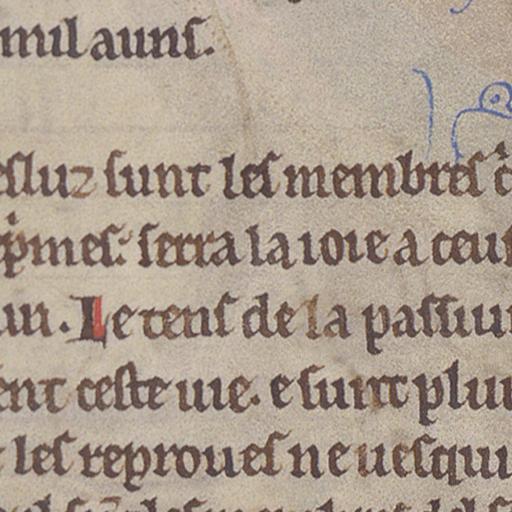 mil auns.
esluz sunt les membres
pmes: serra la ioie a ceus
un. Le tens de la passiun
ent ceste uie. e sunt plui
les reproues ne uesqui